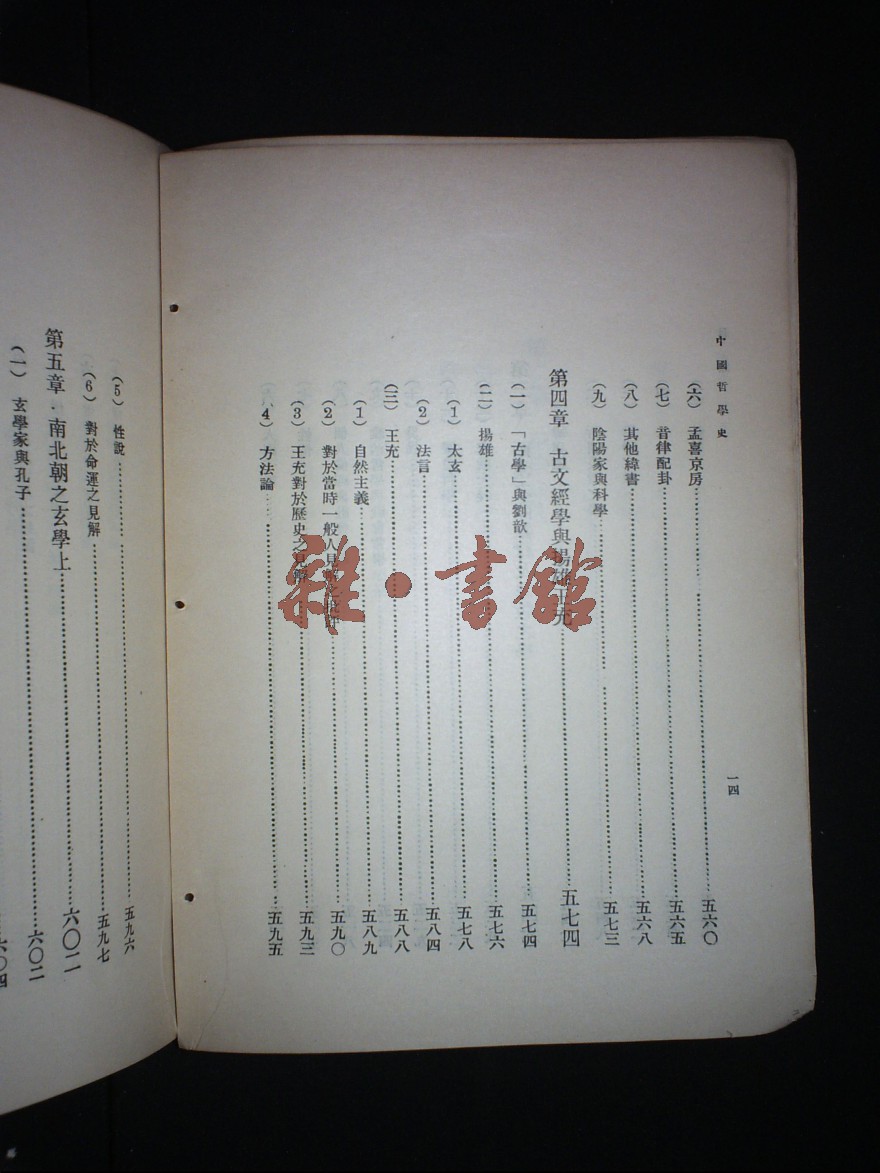 中國哲學史
一四
(六) 孟喜京房……五六〇
(七) 音律配卦……五六五
(八) 其他緯書……五六八
(九) 陰陽家與科學……五七三
第四章 古文經學與揚雄王充……五七四
(一) 「古學」與劉歆……五七四
(二) 揚雄……五七六
(1) 太玄……五七八
(2) 法言……五八四
(三) 王充……五八八
(1) 自然主義……五八九
(2) 對於當時一般人見……五九〇
(3) 王充對於歷史之見解……五九三
(4) 方法論……五九五
(5) 性說……五九六
(6) 對於命運之見解……五九七
第五章 南北朝之玄學上……六〇二
(一) 玄學家與孔子……六〇二
六〇四
雜·書館